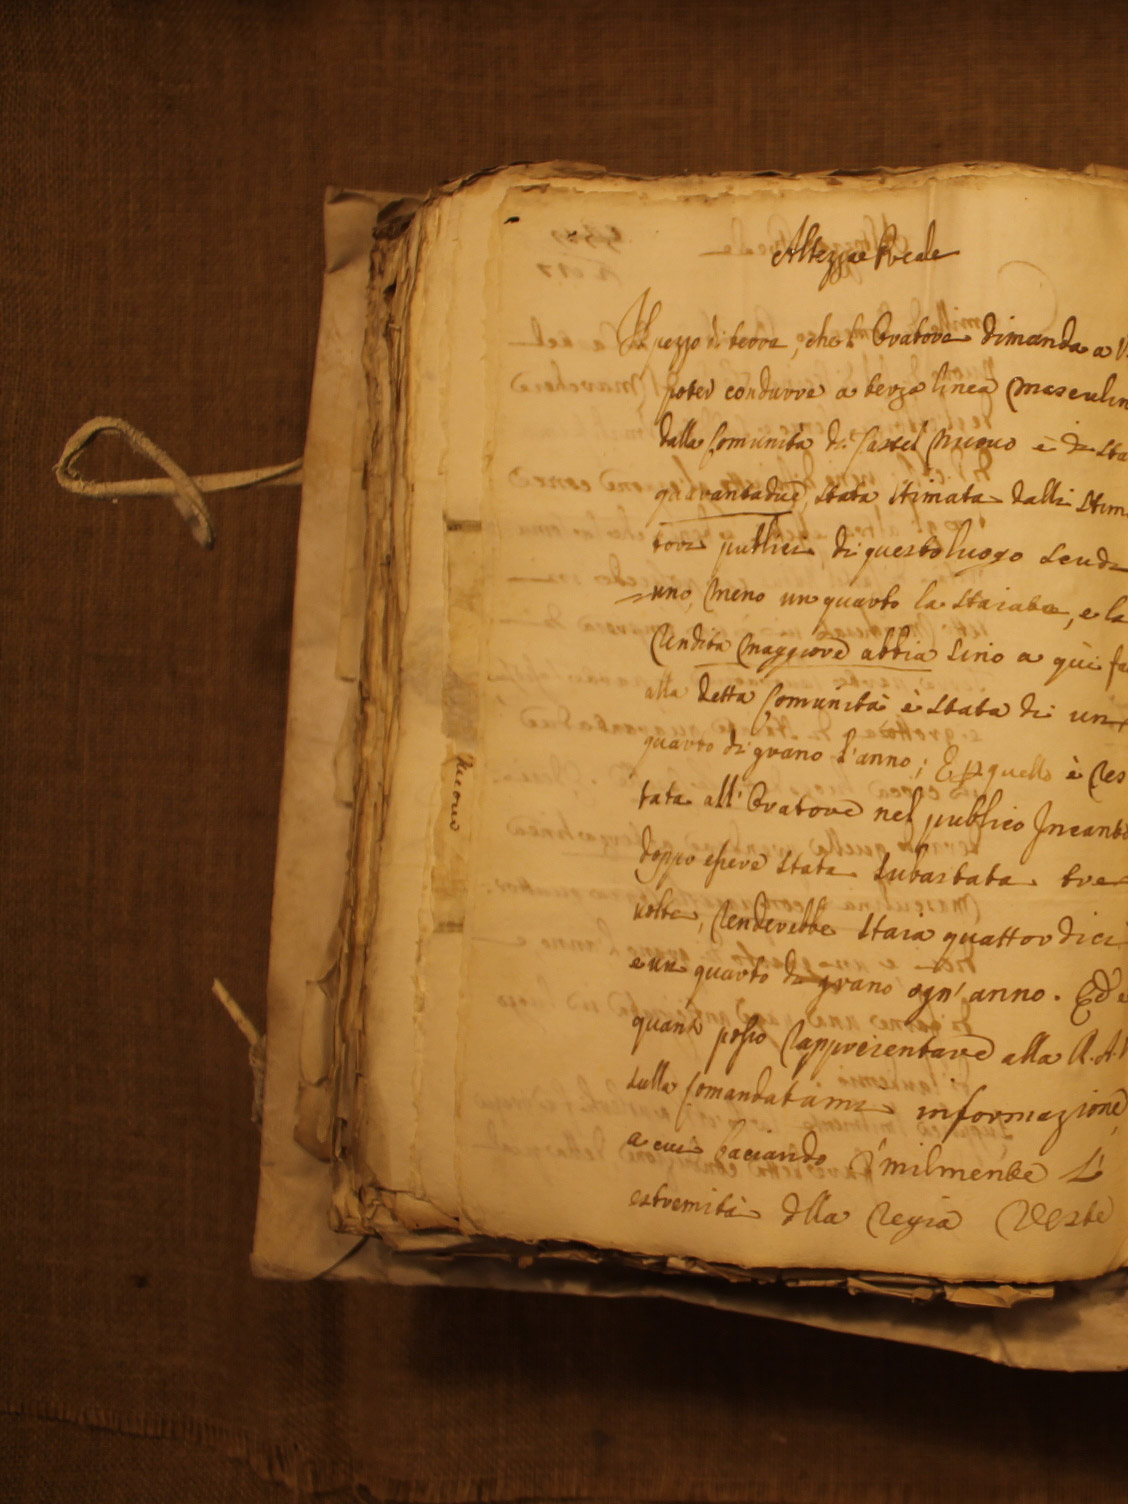 Altezza Reale
Il pezzo di terra, che l'Oratore dimanda a V
poter condurre a terza linea Masculin
dalla Comunità di Castel Nuovo è di sta
quarantadue, stata stimata dalli Stim
tori publici di questo luogo scudi
uno, Meno un quarto la staiata, e la
Rendita Maggiore abbia sino a qui fa
alla detta Comunità è stata di un
quarto di grano l'anno; E p quello è Res
tata all'Oratore nel publico Incanto
doppo essere stata subastata tre
volte, Renderebbe staia quattordici
e un quarto di grano ogn'anno. Ed è
quanto posso Rappresentare alla R.A.V
sulla Comandatami informazione,
a cui baciando Umilmente L'
estremità dlla Regia Veste
Nuovo